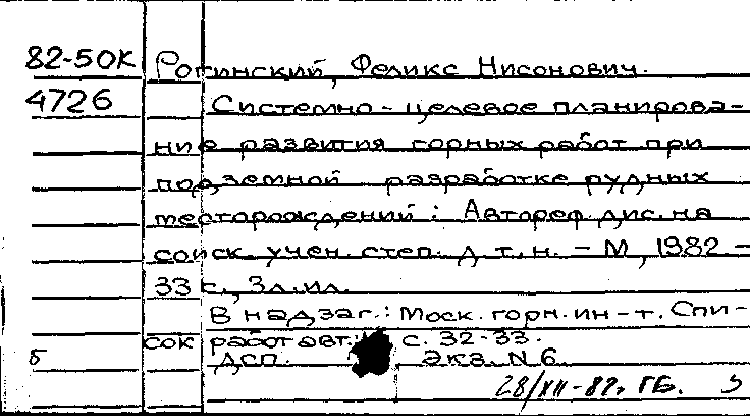 82-50К Рогинский, Феликс Нисонович.
4726 Системно-целевое планирова-
ние развития горных работ при
подземной разработке рудных
месторождений: Автореф. дис. на
соиск. учен. степ. д.т.н. - М, 1982 -
33 с., 3л.ил.
В надзаг.: Моск. горн. ин-т. Спи-
сок работ авт. с. 32-33.
б ДСП. Экз. N 6
28/XII-82г. ГБ.